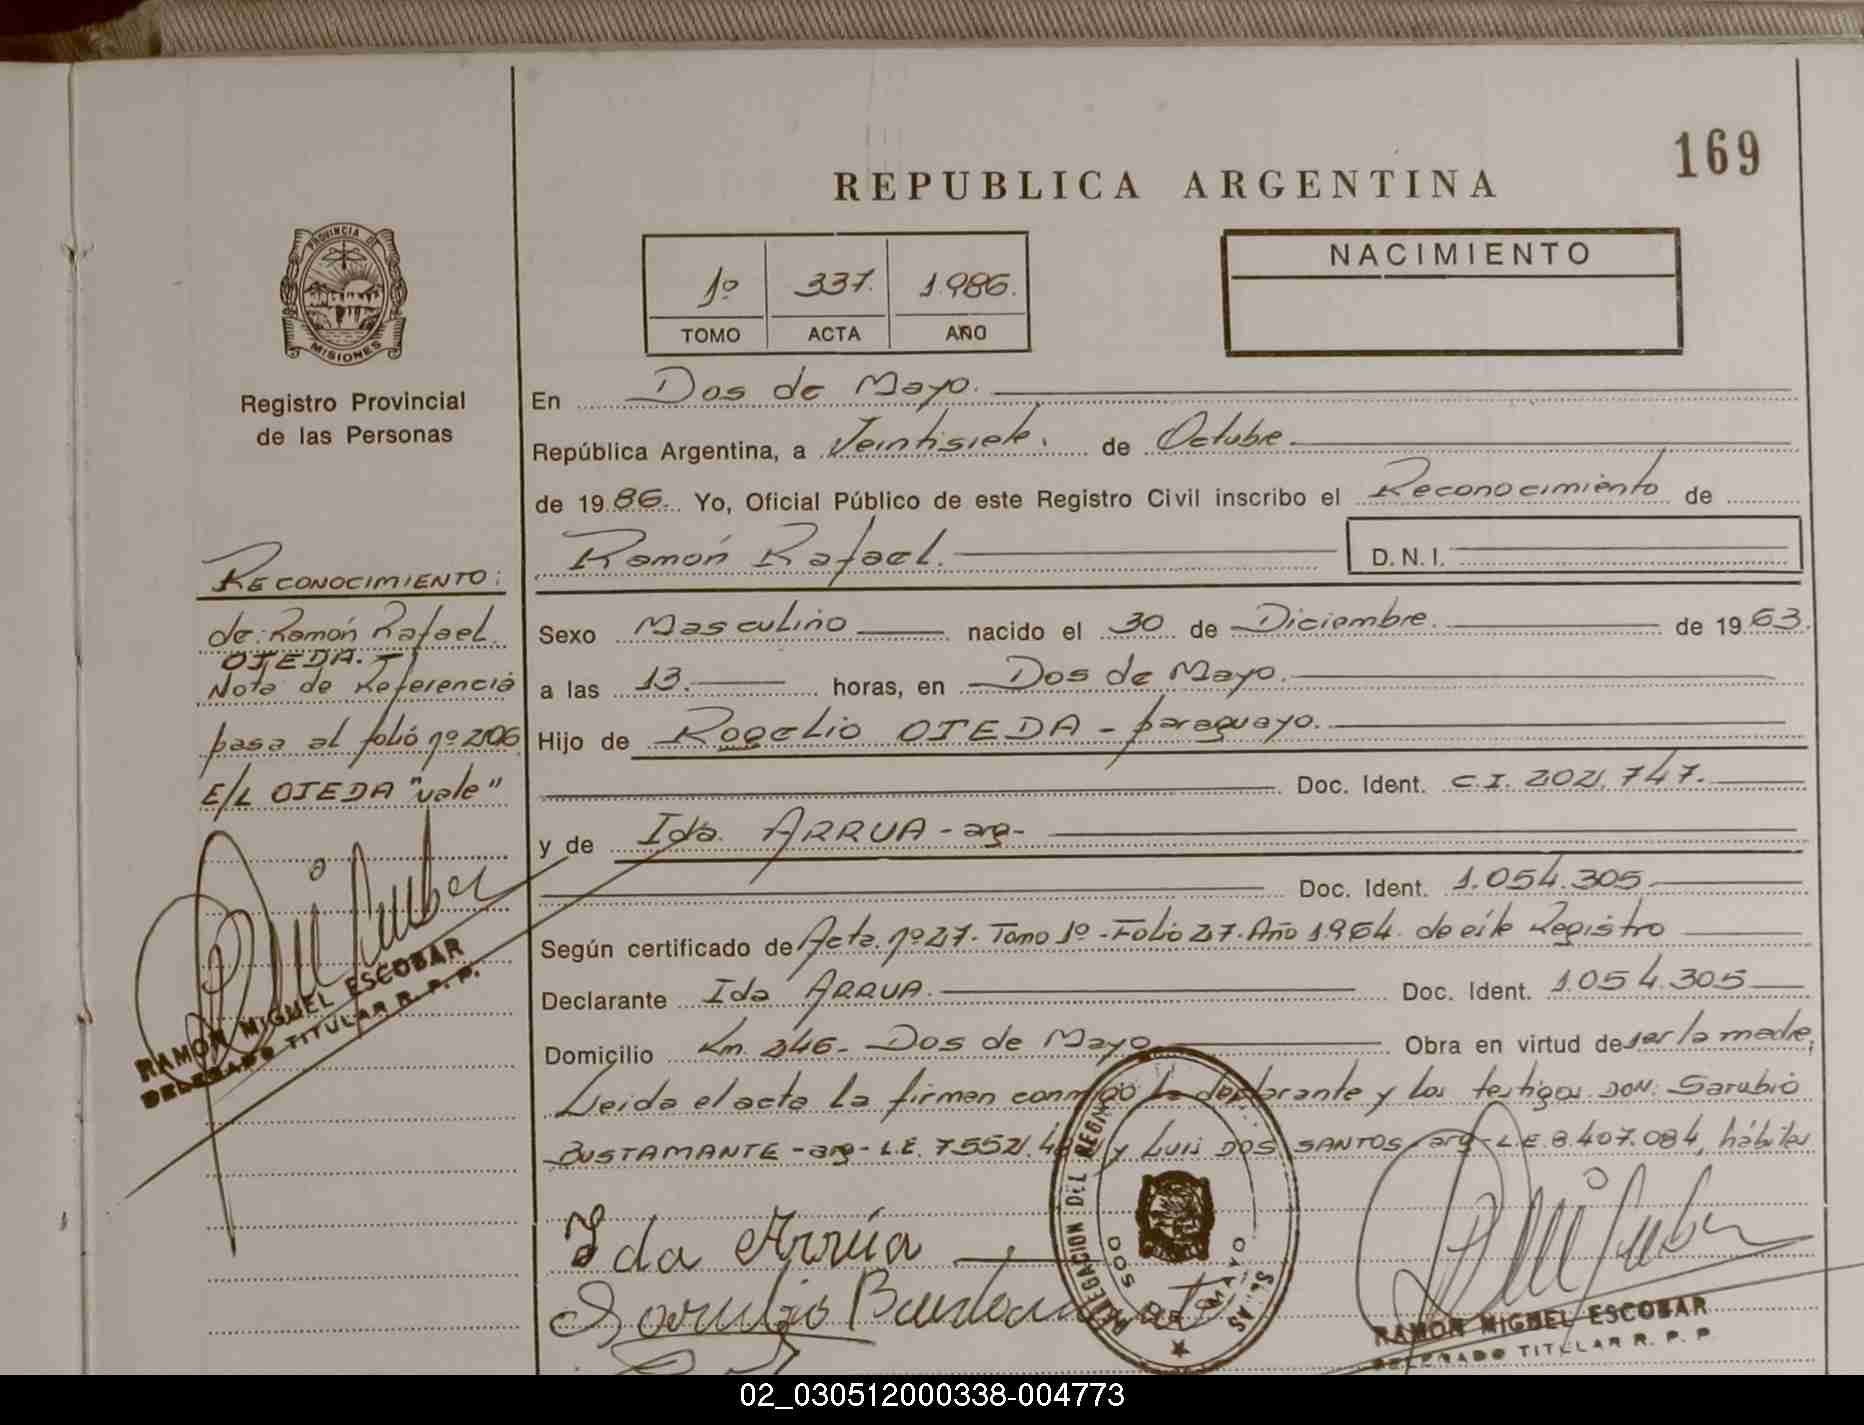 169
REPUBLICA ARGENTINA
PROVINCIA DE
MISIONES
Registro Provincial
de las Personas
1º 337. 1.986.
TOMO ACTA AÑO
NACIMIENTO
En Dos de Mayo.
República Argentina, a Veintisiete. de Octubre.
de 1986. Yo, Oficial Público de este Registro Civil inscribo el Reconocimiento de
Ramón Rafael. D. N. I.
Sexo Masculino nacido el 30 de Diciembre. de 1963.
a las 13. horas, en Dos de Mayo.
Hijo de Rogelio OJEDA - paraguayo.
Doc. Ident. C.I. 202.747.
y de Ida ARRUA - arg-
Doc. Ident. 1.054.305
Según certificado de Acta nº 27. Tomo 1º - Folio 27. Año 1964. de éste Registro
Declarante Ida ARRUA. Doc. Ident. 1.054.305
Domicilio Km. 246- Dos de Mayo Obra en virtud de ser la madre,
Leida el acta la firman conmigo la declarante y los testigos DON: Sarubio
BUSTAMANTE - arg - L.E. 7552. y Luis DOS SANTOS - arg - L.E. 8.407.084, hábiles
RECONOCIMIENTO:
de: Ramón Rafael
OJEDA.-
Nota de Referencia
pasa al folio nº 206
E/L OJEDA "vale"
RAMON MIGUEL ESCOBAR
DELEGADO TITULAR R. P. P.
Ida Arrúa
Sarubio Bustamante
DELEGACION DEL REGN
DOS DE MAYO
RAMON MIGUEL ESCOBAR
DELEGADO TITULAR R. P. P
02_030512000338-004773